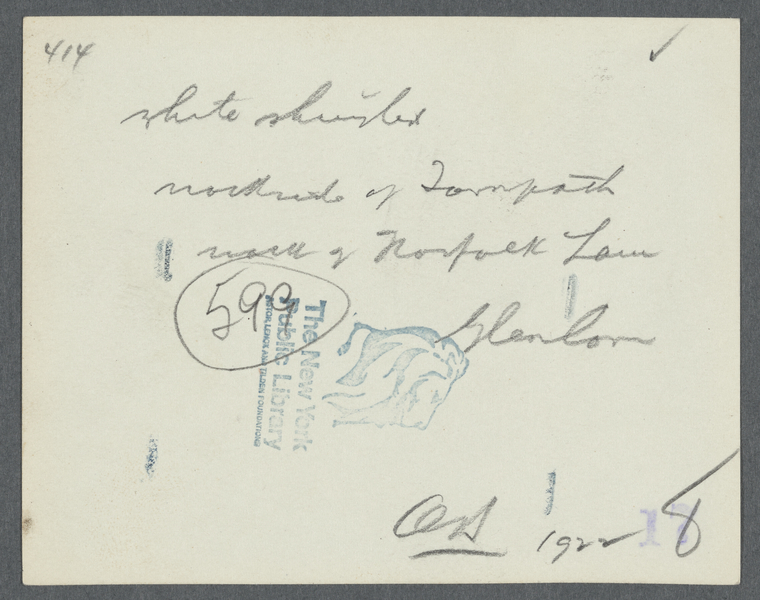 414
white shingles
northside of Townpath
north of Norfolk Lane
599
Glen Cove
The New York
Public Library
ASTOR LENOX AND TILDEN FOUNDATIONS
1922
8